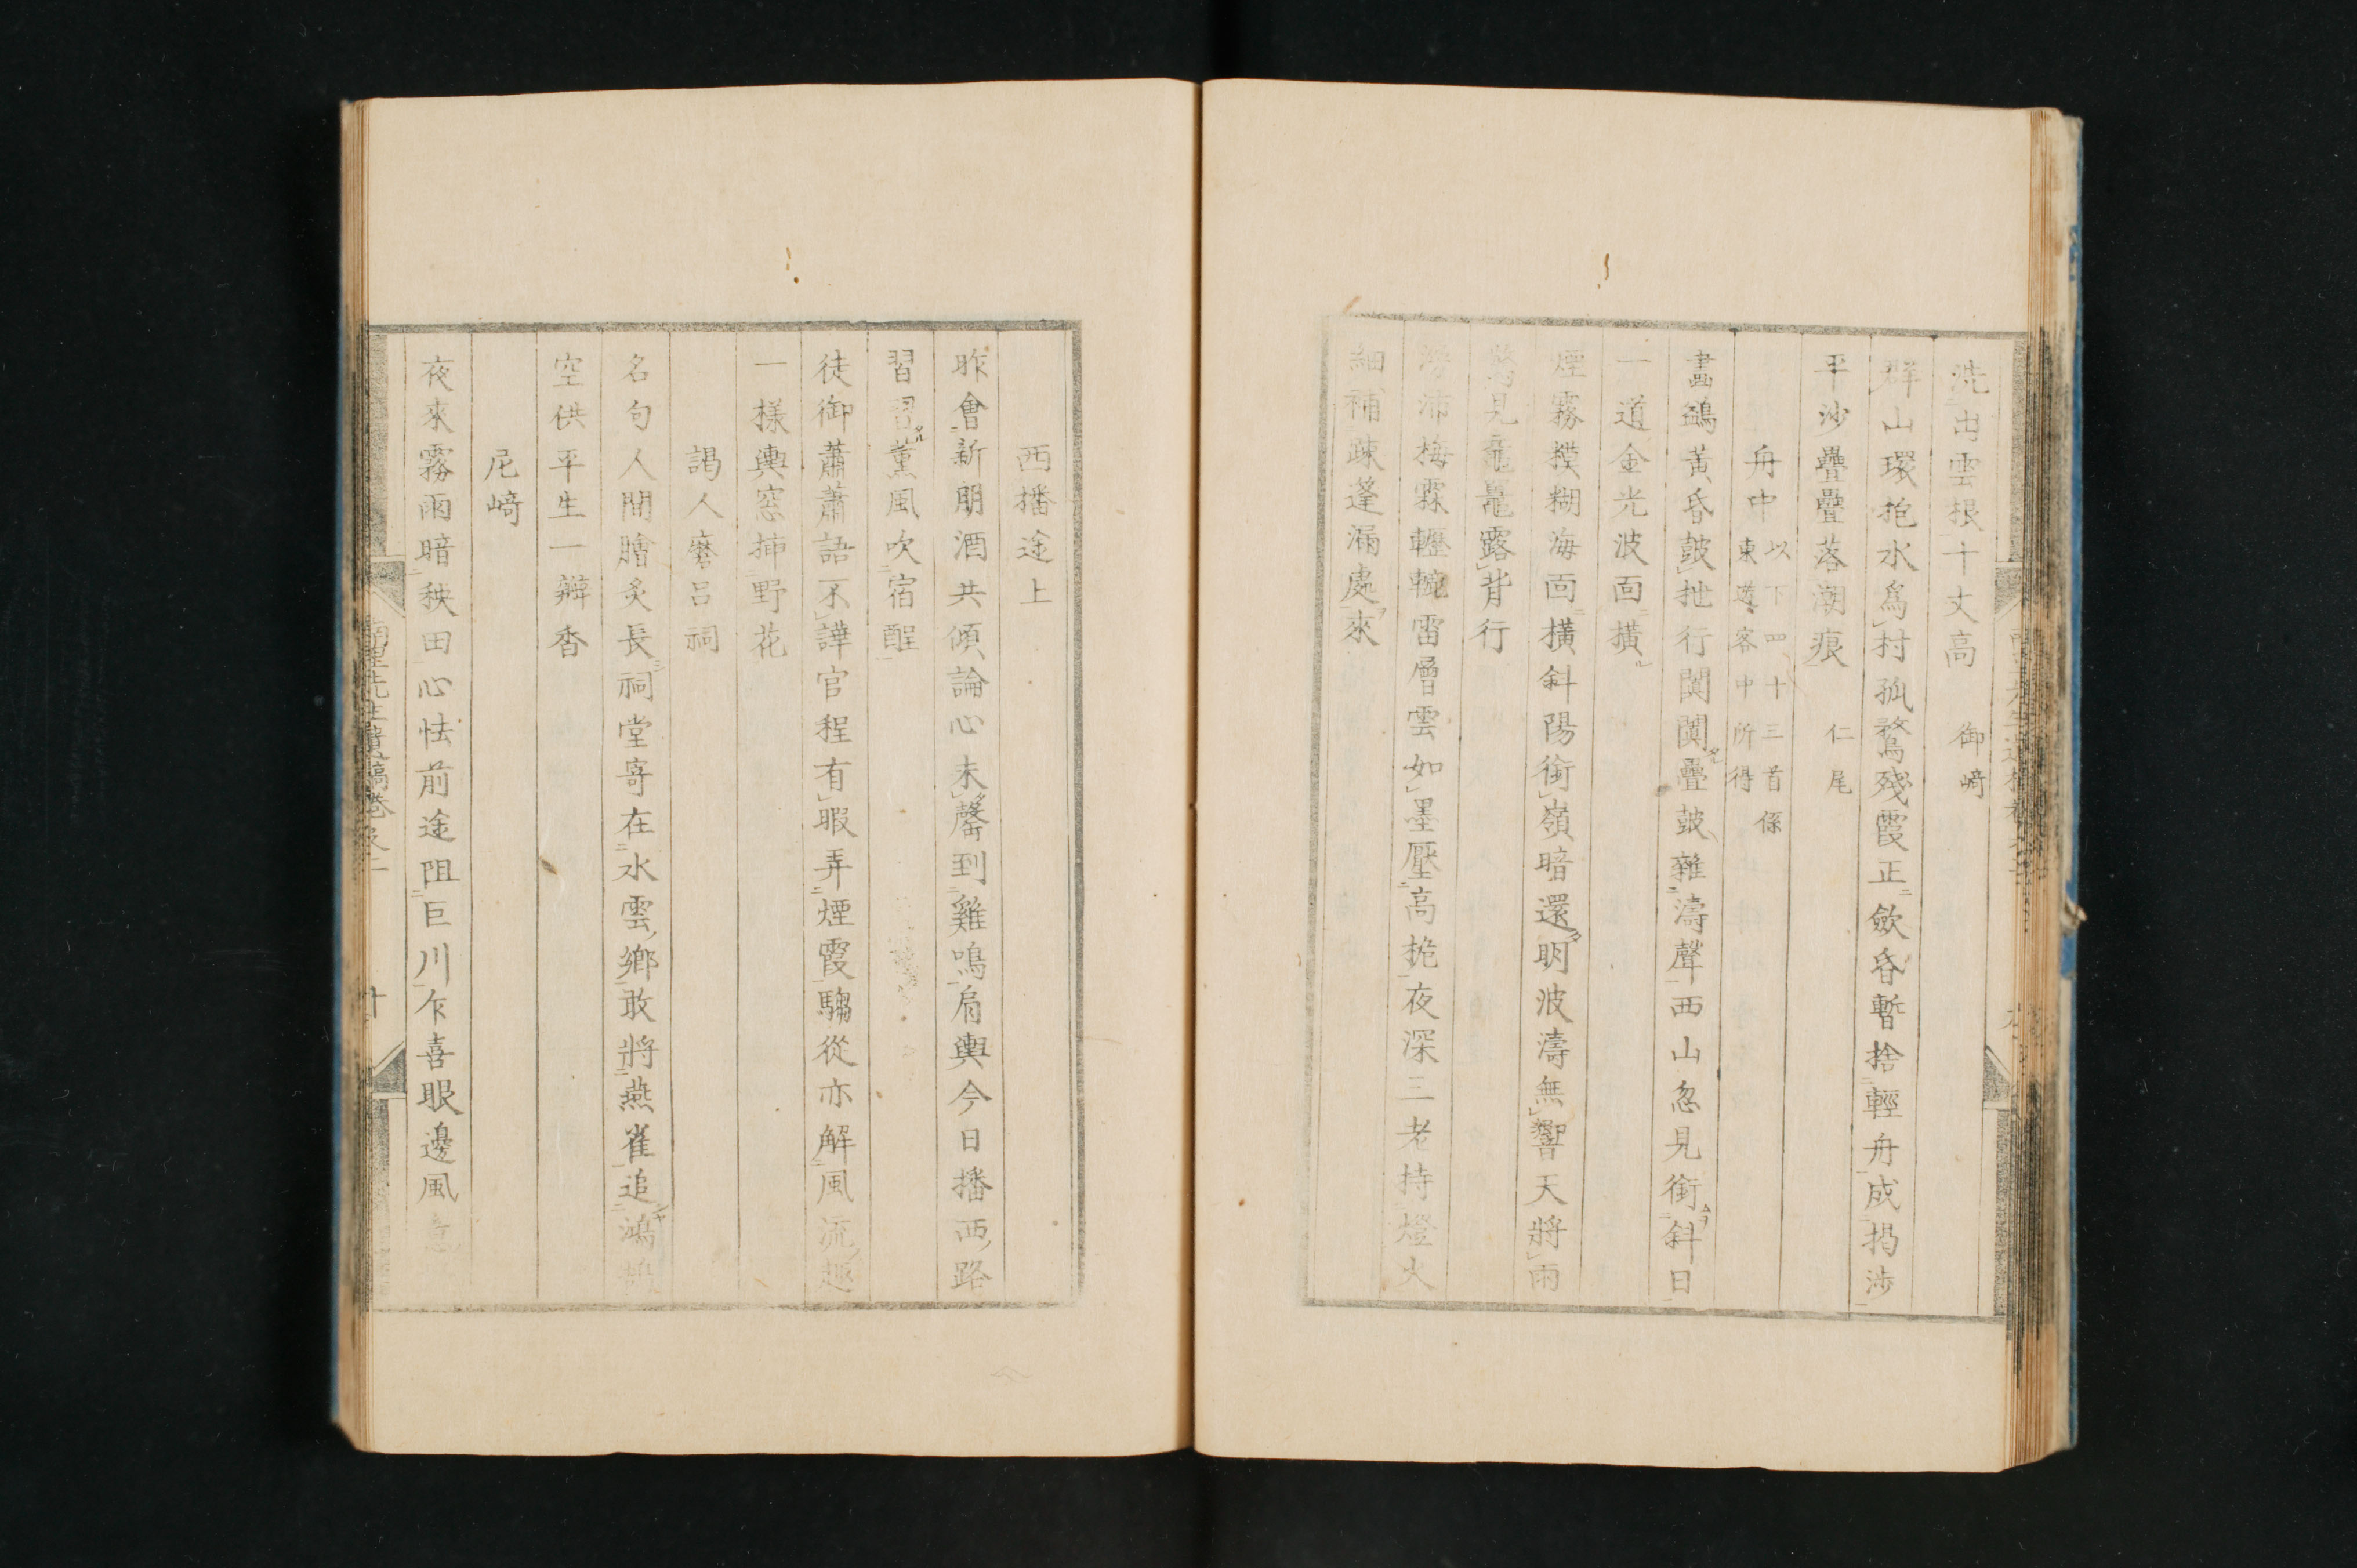 洗出雲根十丈高　御﨑
群山環抱水爲村孤鶩殘霞正歛昏暫捨輕舟成揭渉
平沙疊疊落潮痕　仁尾
舟中 以下四十三首係東遊客中所得
畵鷁黃昏皷枻行闐闐疊皷雜濤聲西山忽見銜斜日
一道金光波面橫
煙霧糢糊海面橫斜陽銜嶺暗還明波濤無響天將雨
見黿鼉露背行
沛梅霖轣轆雷層雲如墨壓高桅夜深三老持燈火
細補疎篷漏處來
西播途上
昨會新朋酒共傾論心未罄到雞鳴肩輿今日播西路
習習薰風吹宿酲
徒御蕭蕭語不譁官程有暇弄煙霞騶從亦解風流趣
一樣輿窓揷野花
謁人麿呂祠
名句人間膾炙長祠堂寄在水雲鄉敢將燕雀追鴻
空供平生一瓣香
尼﨑
夜來霧雨暗秧田心怯前途阻巨川乍喜眼邊風
先生遺稿卷之二
十